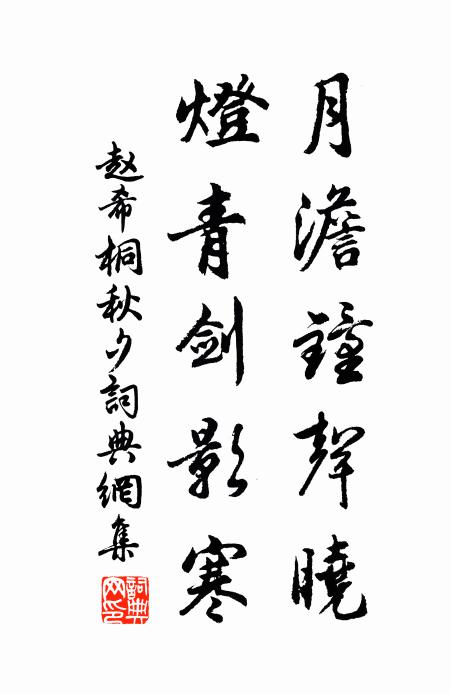 月澹鐘聲曉
燈青劍影寒
赵希桐秋夕詞典網集
詞典網印